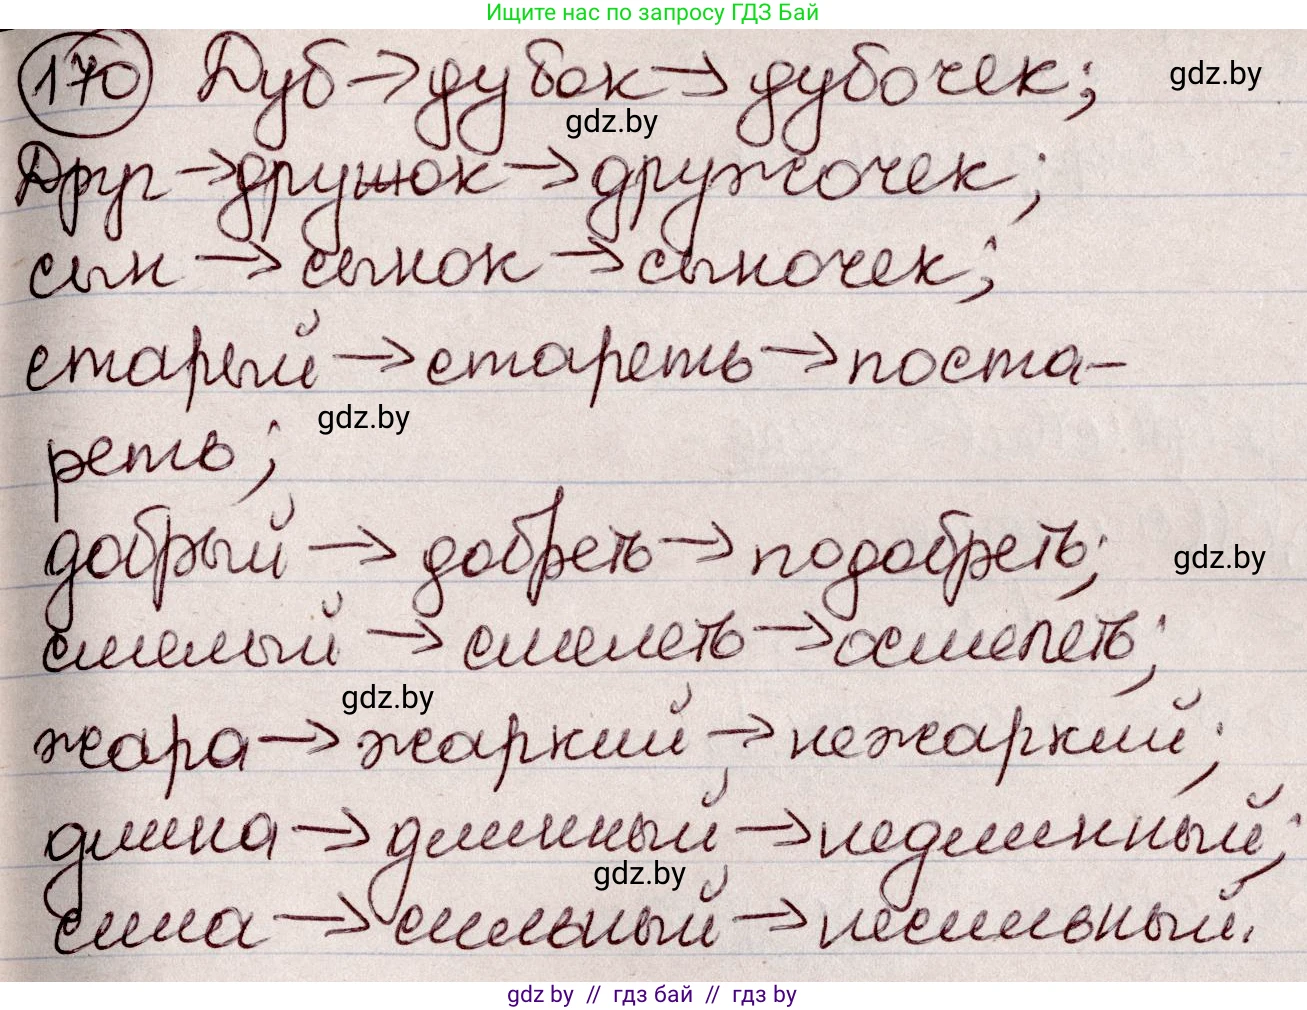 Ищите нас по запросу ГДЗ Бай
170 Дуб → дубок → дубочек; gdz.by
gdz.by
Друг → дружок → дружочек;
сын → сынок → сыночек;
старый → стареть → поста-
gdz.by
реть;
добрый → добреть → подобреть; gdz.by
смелый → смелеть → осмелеть;
gdz.by
жара → жаркий → нежаркий;
длина → длинный → недлинный;
gdz.by
сила → сильный → несильный.
gdz.by // гдз бай // гдз by